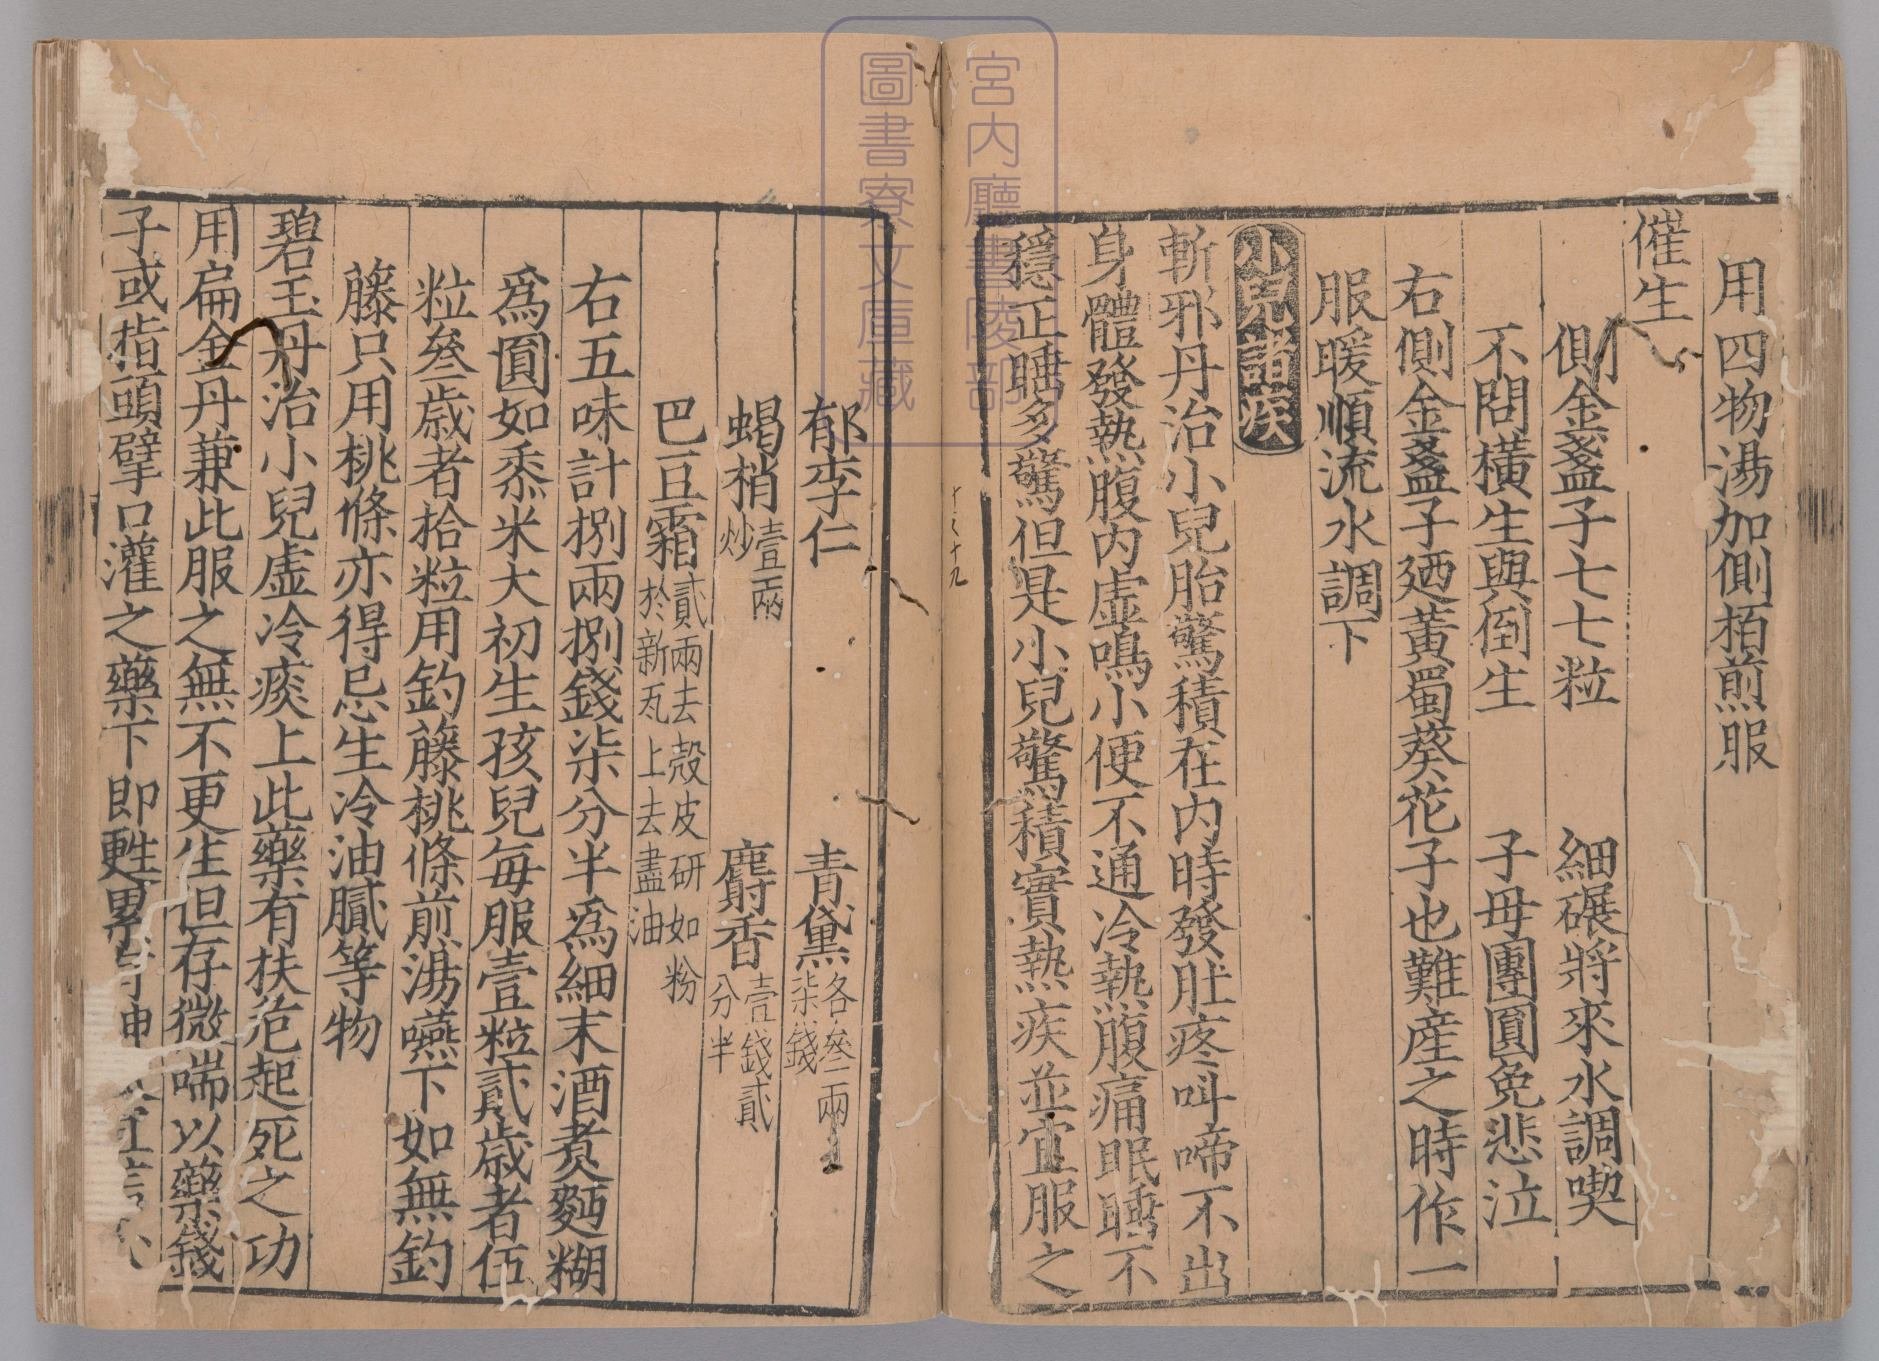 用四物湯加側栢煎服
催生
側金盞子七七粒　細碾將來水調喫
不問橫生與倒生　子母團圓免悲泣
右側金盞子廼黃蜀葵花子也難產之時作一
服暖順流水調下
小兒諸疾
斬邪丹治小兒胎驚積在內時發肚疼叫啼不出
身體發熱腹內虛鳴小便不通冷熱腹痛眠睡不
穩正睡多驚但是小兒驚積實熱疾並宜服之
十八十九
郁李仁　青黛各叄兩柒錢
蝎梢壹兩炒　麝香壹錢貳分半
巴豆霜貳兩去殼皮研如粉於新瓦上去盡油
右五味計捌兩捌錢柒分半爲細末酒煑麪糊
爲圓如黍米大初生孩兒每服壹粒貳歲者伍
粒叄歲者拾粒用釣藤桃條煎湯嚥下如無釣
藤只用桃條亦得忌生冷油膩等物
碧玉丹治小兒虛冷痰上此藥有扶危起死之功
用扁金丹兼此服之無不更生但存微喘以藥錢
子或指頭擘口灌之藥下即甦累
宮內廳書陵部
圖書寮文庫藏